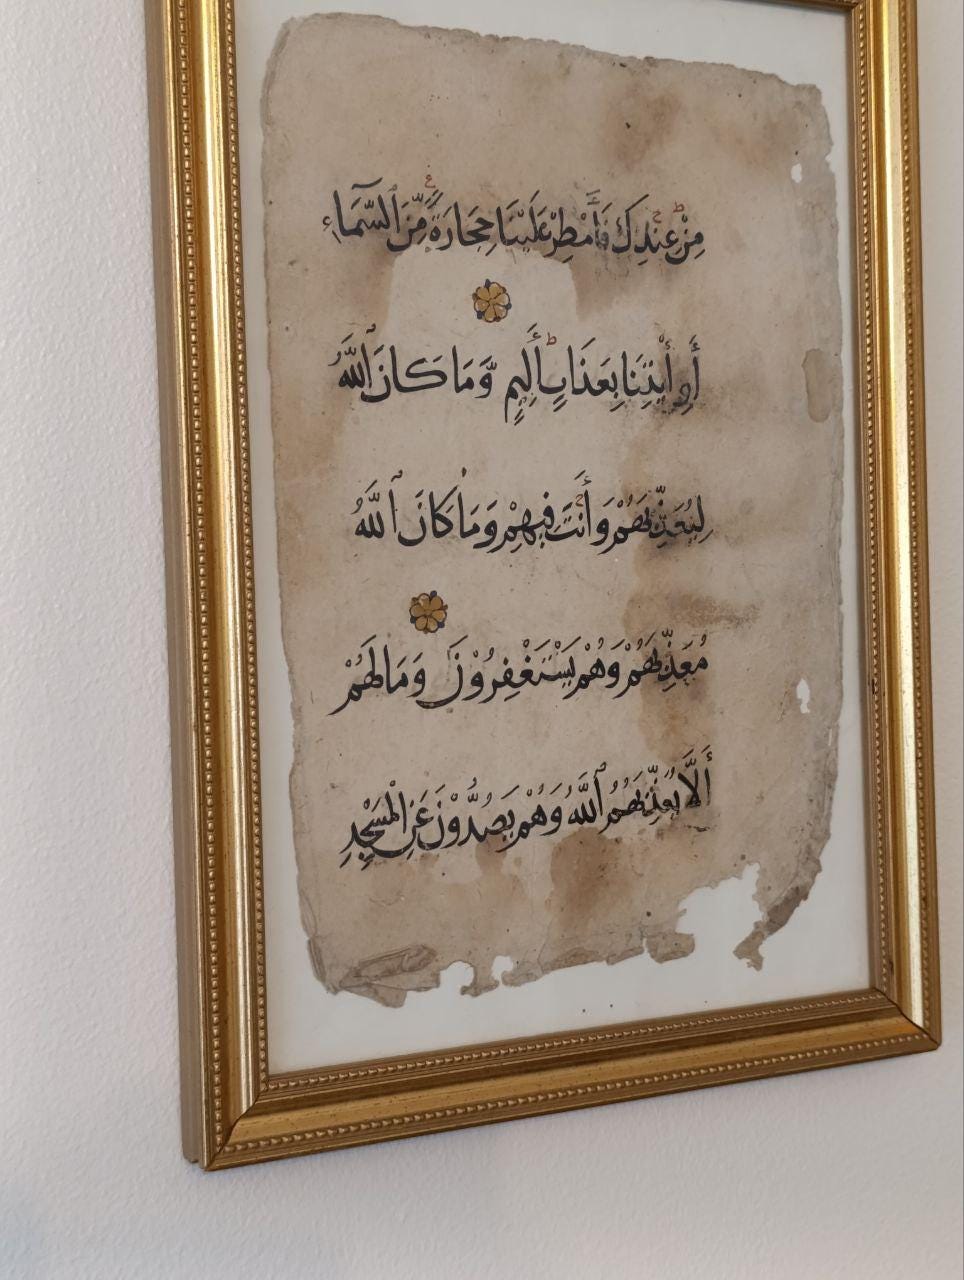 مِنْ عِنْدِكَ فَأَمْطِرْ عَلَيْنَا حِجَارَةً مِّنَ ٱلسَّمَاءِ
أَوِ أْئْتِنَا بِعَذَابٍ أَلِيمٍ وَّمَا كَانَ ٱللَّهُ
لِيُعَذِّبَهُمْ وَأَنْتَ فِيهِمْ وَمَا كَانَ ٱللَّهُ
مُعَذِّبَهُمْ وَهُمْ يَسْتَغْفِرُوْنَ وَمَا لَهُمْ
أَلَّا يُعَذِّبَهُمُ ٱللَّهُ وَهُمْ يَصُدُّوْنَ عَنِ الْمَسْجِدِ